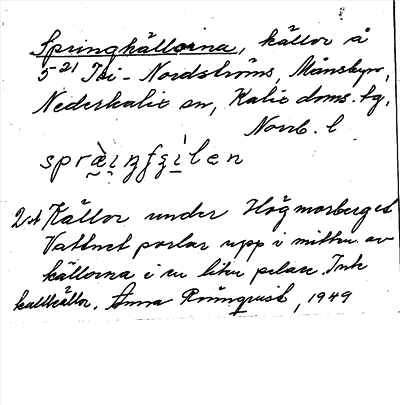 Springkällorna, källor å
5²¹ Isi-Nordströms, Månsbyn,
Nederkalix sn, Kalix doms. tg,
Norrb. l
spræ̀i̯ŋfʒi̯len
2 st Källor under Högmorberget
Vattnet porlar upp i mitten av
källorna i en liten pelare. Ink
kallkällor. Anna Rönnqvist, 1949